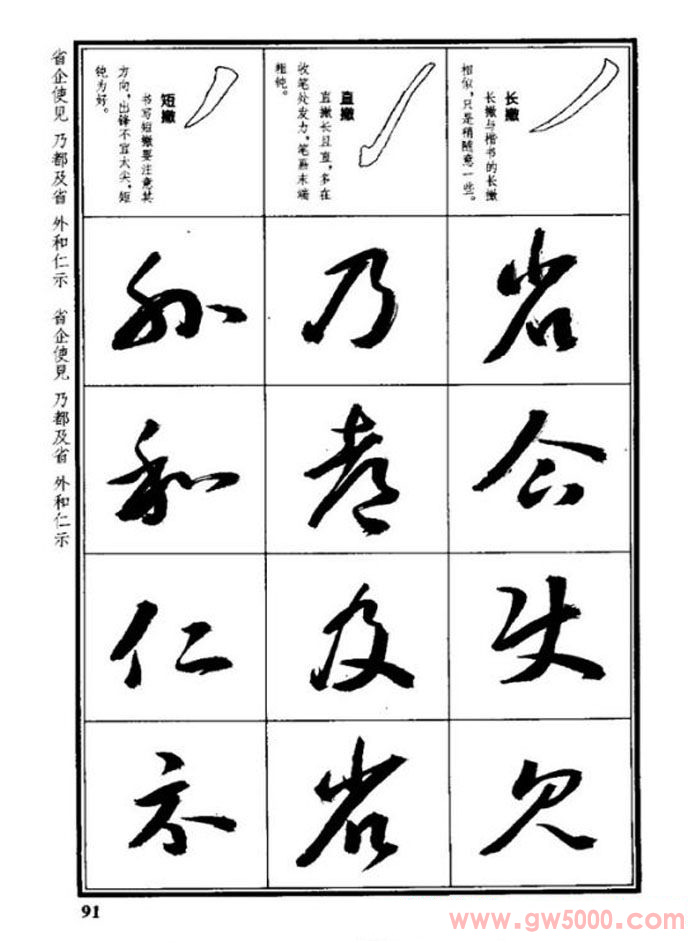 长撇
长撇与楷书的长撇
相似，只是稍随意一些。
省
企
使
見
直撇
直撇长且直，多在
收笔处发力，笔画末端
粗钝。
乃
都
及
省
短撇
书写短撇要注意其
方向，出锋不宜太尖，短
钝为好。
外
和
仁
示
省企使見 乃都及省 外和仁示 省企使見 乃都及省 外和仁示
91
www.gw5000.com